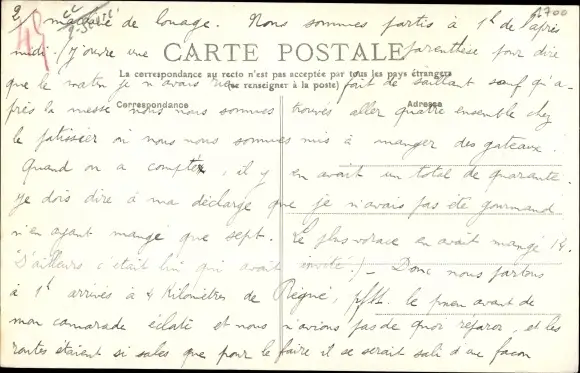 2/ machine de louage. Nous sommes partis à 1h de l'après
A2700
45
midi. (j'ouvre une parenthèse pour dire
CARTE POSTALE
La correspondance au recto n'est pas acceptée par tous les pays étrangers
(se renseigner à la poste)
que le matin je n'avais rien fait de saillant sauf qu'a-
Correspondance
Adresse
près la messe nous nous sommes trouvés aller quatre ensemble chez
le pâtissier où nous nous sommes mis à manger des gateaux.
Quand on a compté, il y en avait un total de quarante.
Je dois dire à ma décharge que je n'avais pas été gourmand
n'en ayant mangé que sept. Le plus vorace en avait mangé 14.
D'ailleurs c'était lui qui avait invité.) - Donc nous partons
à 1h arrivés à 4 kilomètres de Reigné, pfft. le pneu avant de
mon camarade éclate et nous n'avions pas de quoi réparer, et les
routes étaient si sales que pour le faire il se serait sali d'une façon